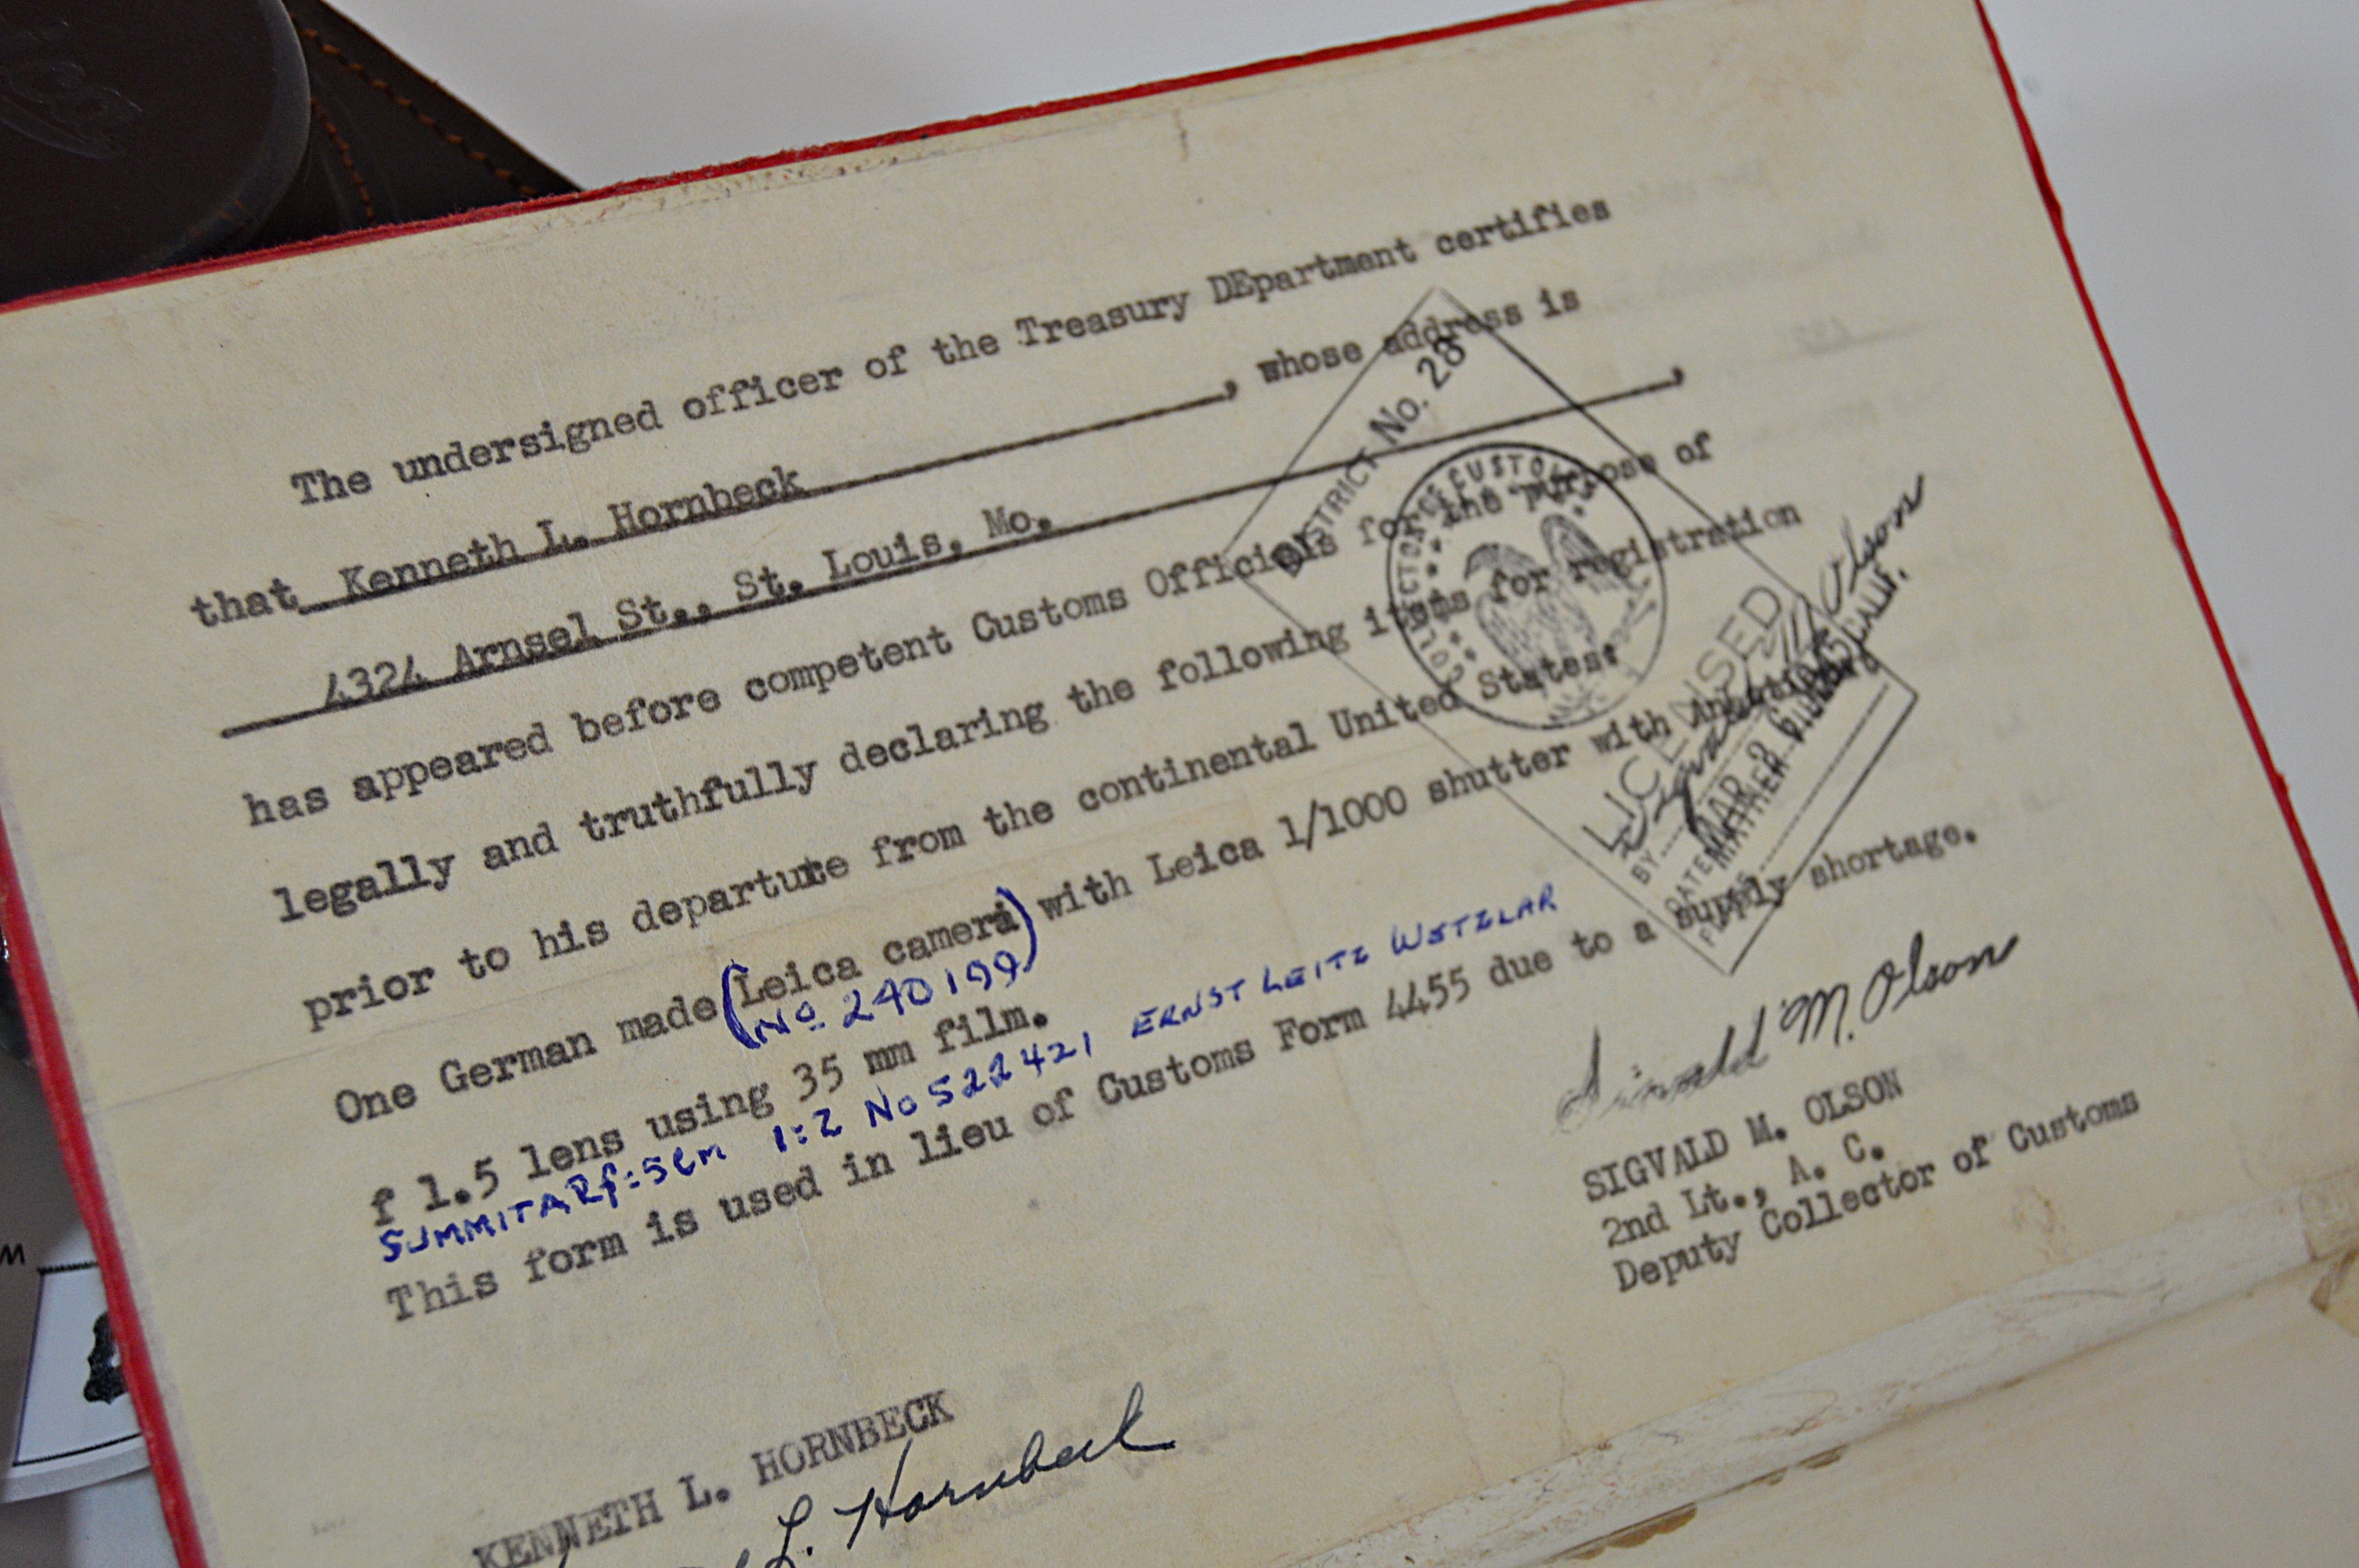 The undersigned officer of the Treasury DEpartment certifies
that Kenneth L. Hornbeck, whose address is
4324 Arnsel St., St. Louis, Mo.,
has appeared before competent Customs Officials for the purpose of
legally and truthfully declaring the following items for registration
prior to his departure from the continental United States:
One German made (Leica camera) with Leica 1/1000 shutter with
No 240199
f 1.5 lens using 35 mm film.
SUMMITAR f:5cm 1:2 No 522421 ERNST LEITZ WETZLAR
This form is used in lieu of Customs Form 4455 due to a supply shortage.
DISTRICT No. 28
COLLECTOR OF CUSTOMS
LICENSED
BY
DATE MAR 26 1945
MATHER FIELD, CALIF.
Sigvald M. Olson
SIGVALD M. OLSON
2nd Lt., A. C.
Deputy Collector of Customs
KENNETH L. HORNBECK
L. Hornbeck